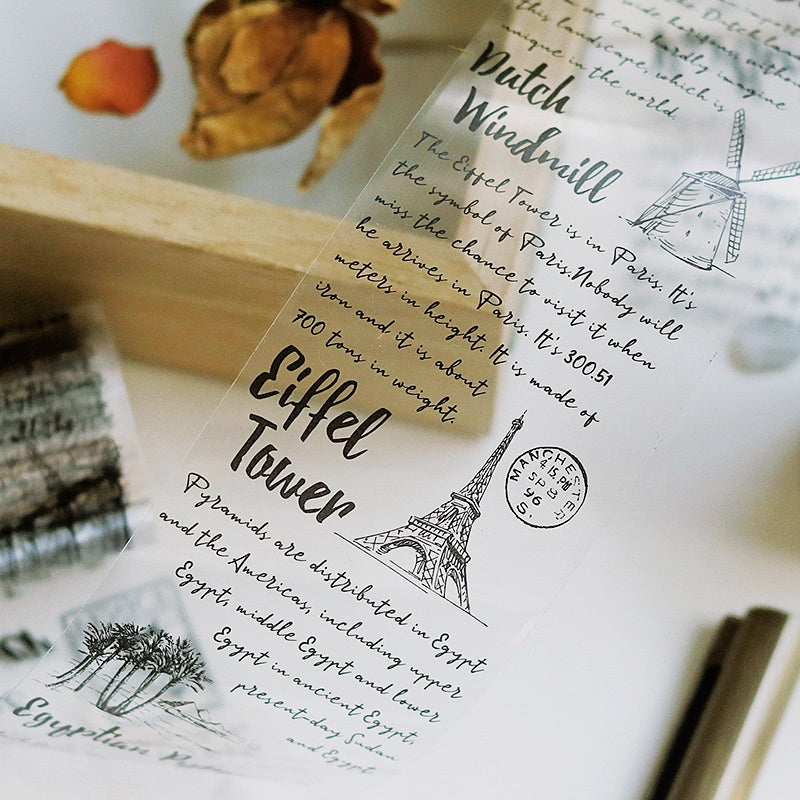 this landscape, which is
one can hardly imagine
unique in the world.
Dutch
Windmill
The Eiffel Tower is in Paris. It's
the symbol of Paris.Nobody will
miss the chance to visit it when
he arrives in Paris. It's 300.51
meters in height. It is made of
iron and it is about
700 tons in weight.
Eiffel
Tower
MANCHESTER
4.15.PM
SP 8
96
S.
Pyramids are distributed in Egypt
and the Americas, including upper
Egypt, middle Egypt and lower
Egypt in ancient Egypt,
present-day Sudan
and Egypt.
Egyptian